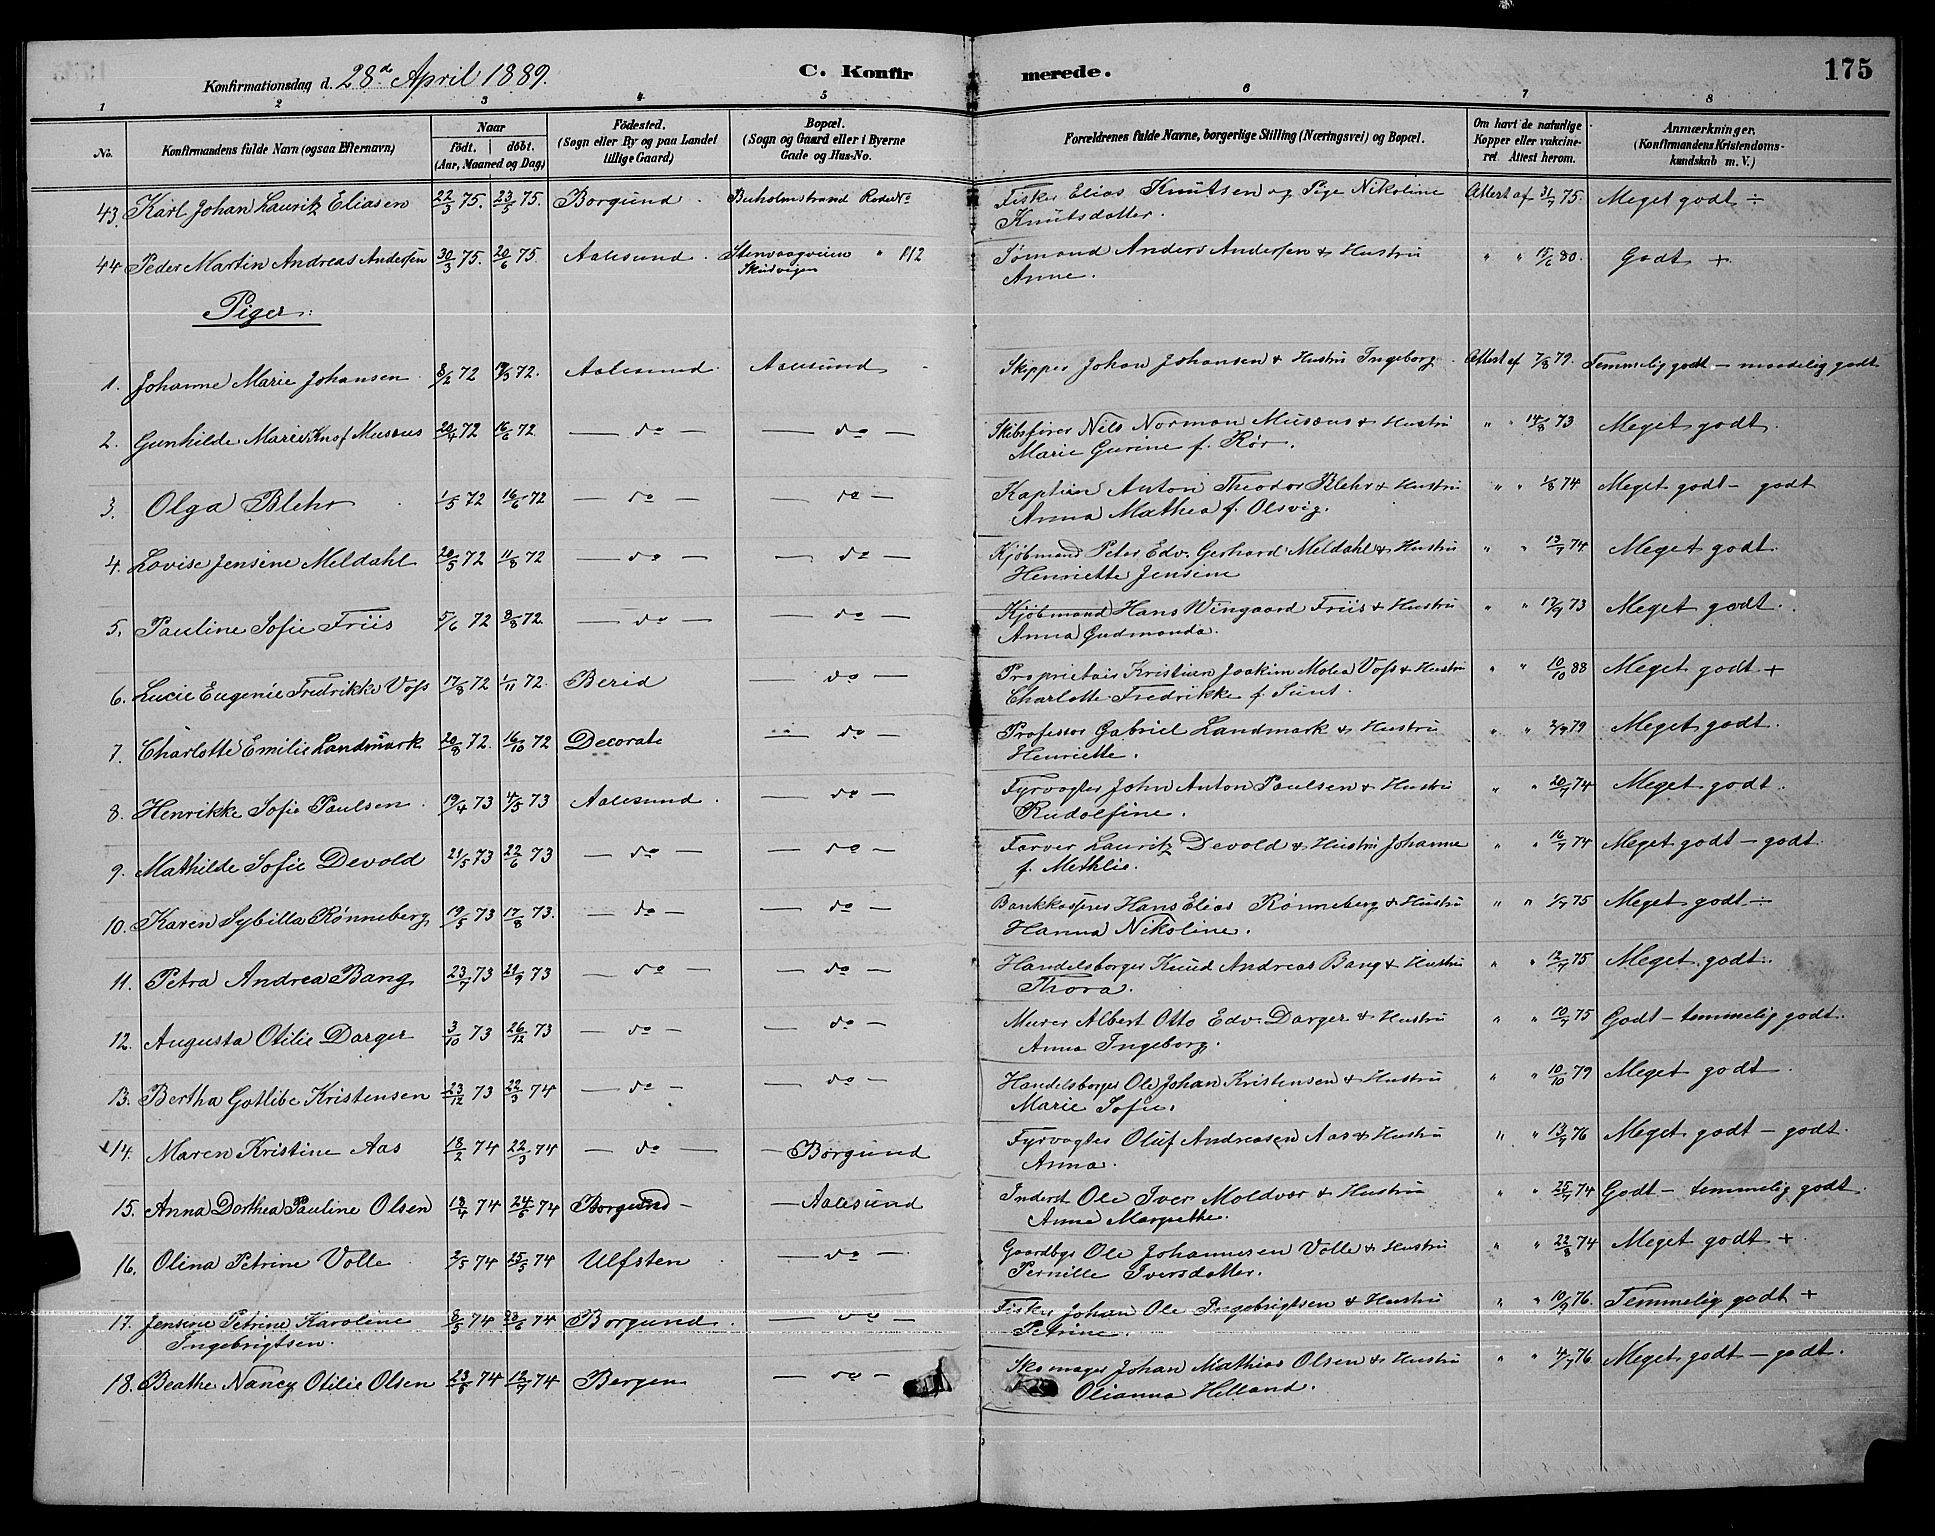 Konfirmationsdag d. 28de April 1889. C. Konfirmerede. 175
1 2 3 4 5 6 7 8
No. Konfirmandens fulde Navn (ogsaa Efternavn) Naar födt. döbt. (Aar, Maaned og Dag) Födested. (Sogn eller By og paa Landet tillige Gaard) Bopæl. (Sogn og Gaard eller i Byerne Gade og Hus-No. Forældrenes fulde Navne, borgerlige Stilling (Næringsvei) og Bopæl. Om havt de naturlige Kopper eller vakcineret. Attest herom. Anmærkninger, (Konfirmandens Kristendomskundskab m. V.)
43. Karl Johan Lauritz Eliasen 22/3 75. 23/5 75. Borgund. Buholmstrand Rode No Fisker Elias Knutsen og Pige Nikoline Attest af 31/7 75. Meget godt ÷
Knutsdatter.
44 Peder Martin Andreas Andersen 30/3 75. 20/6 75 Aalesund. Stenvaagveien " 112 Sømand Anders Andersen & Hustru " " 15/6 80. Godt +
Skudvigen Anne.
Piger:
1. Johanne Marie Johansen 8/2 72 72. Aalesund. Aalesund Skipper Johan Johansen & Hustru Ingeborg. Attest af 7/8 79. Temmelig godt – maadelig godt
2. Gunhilde Marie Knof Musæus 20/4 72 16/6 72 — do — — do — Skibsfører Nils Norman Musæus & Hustru " " 14/8 73 Meget godt.
Marie Gurine f. Rør.
3. Olga Blehr 1/5 72 16/6 72 — do — — do — Kaptein Anton Theodor Blehr & Hustru " " 1/8 74 Meget godt – godt
Anna Mathea f. Olsvig.
4. Lovise Jensine Meldahl 20/5 72 11/8 72 — do — — do — Kjøbmand Peter Edv. Gerhard Meldahl & Hustru " " 13/7 74 Meget godt.
Henriette Jensine
5. Pauline Sofie Friis 5/6 72 8/8 72. — do — — do — Kjøbmand Hans Wingaard Friis & Hustru " " 17/9 73 Meget godt.
Anna Gudmanda.
6. Lucie Eugenie Fredrikke Voss 17/8 72 1/11 72. Berid — do — Proprietair Kristian Joakim Molea Voss & Hustru " " 10/10 88 Meget godt +
Charlotte Fredrikke f.
7. Charlotte Emilie Landmark 20/8 72. 16/10 72 Decorah — do — Professor Gabriel Landmark & Hustru " " 79 Meget godt.
Henriette.
8. Henrikke Sofie Paulsen 19/4 73 4/5 73 Aalesund. — do — Fyrvogter John Anton Paulsen & Hustru " " 20/7 74 Meget godt.
Rudolfine.
9. Mathilde Sofie Devold 21/5 73 22/6 73 — do — — do — Farver Lauritz Devold & Hustru Johanne " " 16/7 74 Meget godt – godt
f. Methlie.
10. Karen Sybilla Rønneberg 19/5 73 17/8 73. — do — — do — Bankkasserer Hans Elias Rønneberg & Hustru " " 1/7 75 Meget godt ÷
Hanna Nikoline.
11. Petra Andrea Bang 23/7 73 21/9 73 — do — — do — Handelsborger Knud Andreas Bang & Hustru " " 12/7 75 Meget godt.
Thora.
12. Augusta Otilie Darger 3/10 73 26/12 73 — do — — do — Murer Albert Otto Edv. Darger & Hustru " " 10/7 75 Godt – temmelig godt.
Anna Ingeborg.
13. Bertha Gotlibe Kristensen 23/12 73 22/3 74 — do — — do — Handelsborger Ole Johan Kristensen & Hustru " " 10/10 79 Meget godt
Marie Sofie.
14. Maren Kristine Aas 18/2 74 22/3 74 — do — — Borgund Fyrvogter Oluf Andreasen Aas & Hustru " " 13/7 76 Meget godt – godt.
Anna.
15. Anna Dorthea Pauline Olsen 13/4 74 24/5 74 Borgund – — Aalesund Inderst Ole Iver Moldvær & Hustru " " 25/7 74 Godt – temmelig godt.
Anne Margrethe.
16. Olina Petrine Volle 2/5 74 25/5 74 Ulfsten — do — Gaardbgr Ole Johannesen Volle & Hustru " " 22/8 74 Meget godt +
Pernille Iversdatter.
17. Jensine Petrine Karoline 8/5 74 28/6 74 Borgund. — do — Fisker Johan Ole Ingebrigtsen & Hustru " " 10/9 76. Temmelig godt +
Ingebrigtsen. Petrine.
18. Beathe Nancy Otilie Olsen 74 12/7 74 Bergen — do — Skomager Johan Mathias Olsen & Hustru " " 4/7 76 Meget godt – godt.
Olianna Helland.